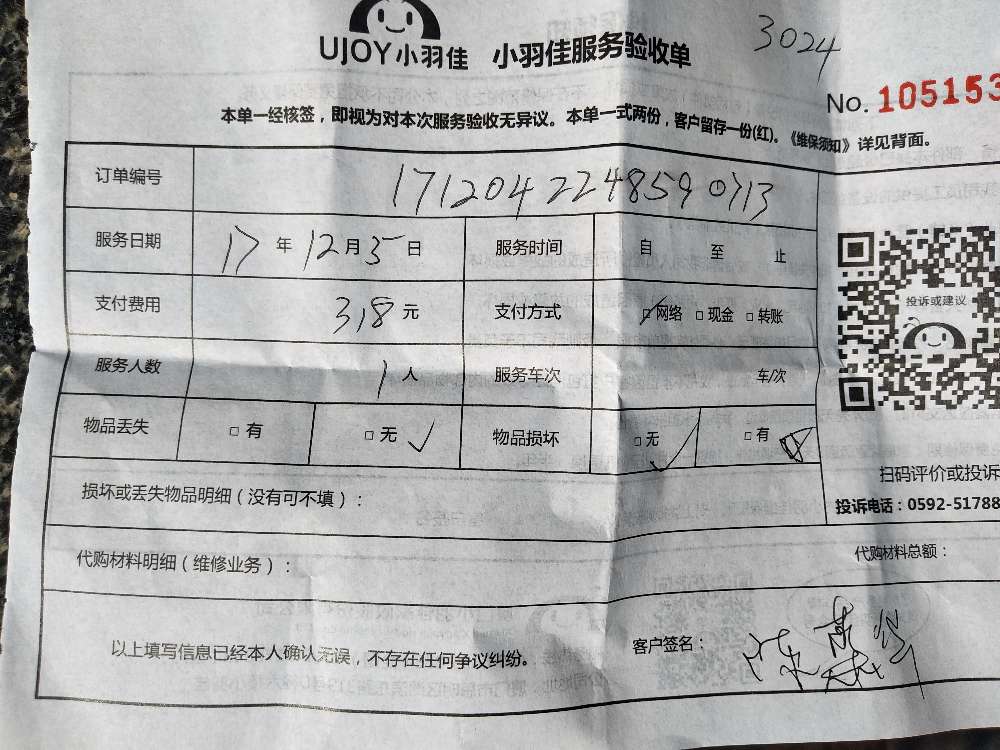 3024
UJOY小羽佳 小羽佳服务验收单
No. 105153
本单一经核签，即视为对本次服务验收无异议。本单一式两份，客户留存一份(红)。《维保须知》详见背面。
订单编号 171204224859 0713
服务日期 17 年 12 月 5 日 服务时间 自 至 止
支付费用 318 元 支付方式 ☑网络 □现金 □转账
投诉或建议
服务人数 1 人 服务车次 车/次
物品丢失 □ 有 □ 无 ✓ 物品损坏 □ 无 ✓ □ 有
扫码评价或投诉
损坏或丢失物品明细（没有可不填）:
投诉电话：0592-51788
代购材料明细（维修业务）: 代购材料总额：
以上填写信息已经本人确认无误，不存在任何争议纠纷。 客户签名：